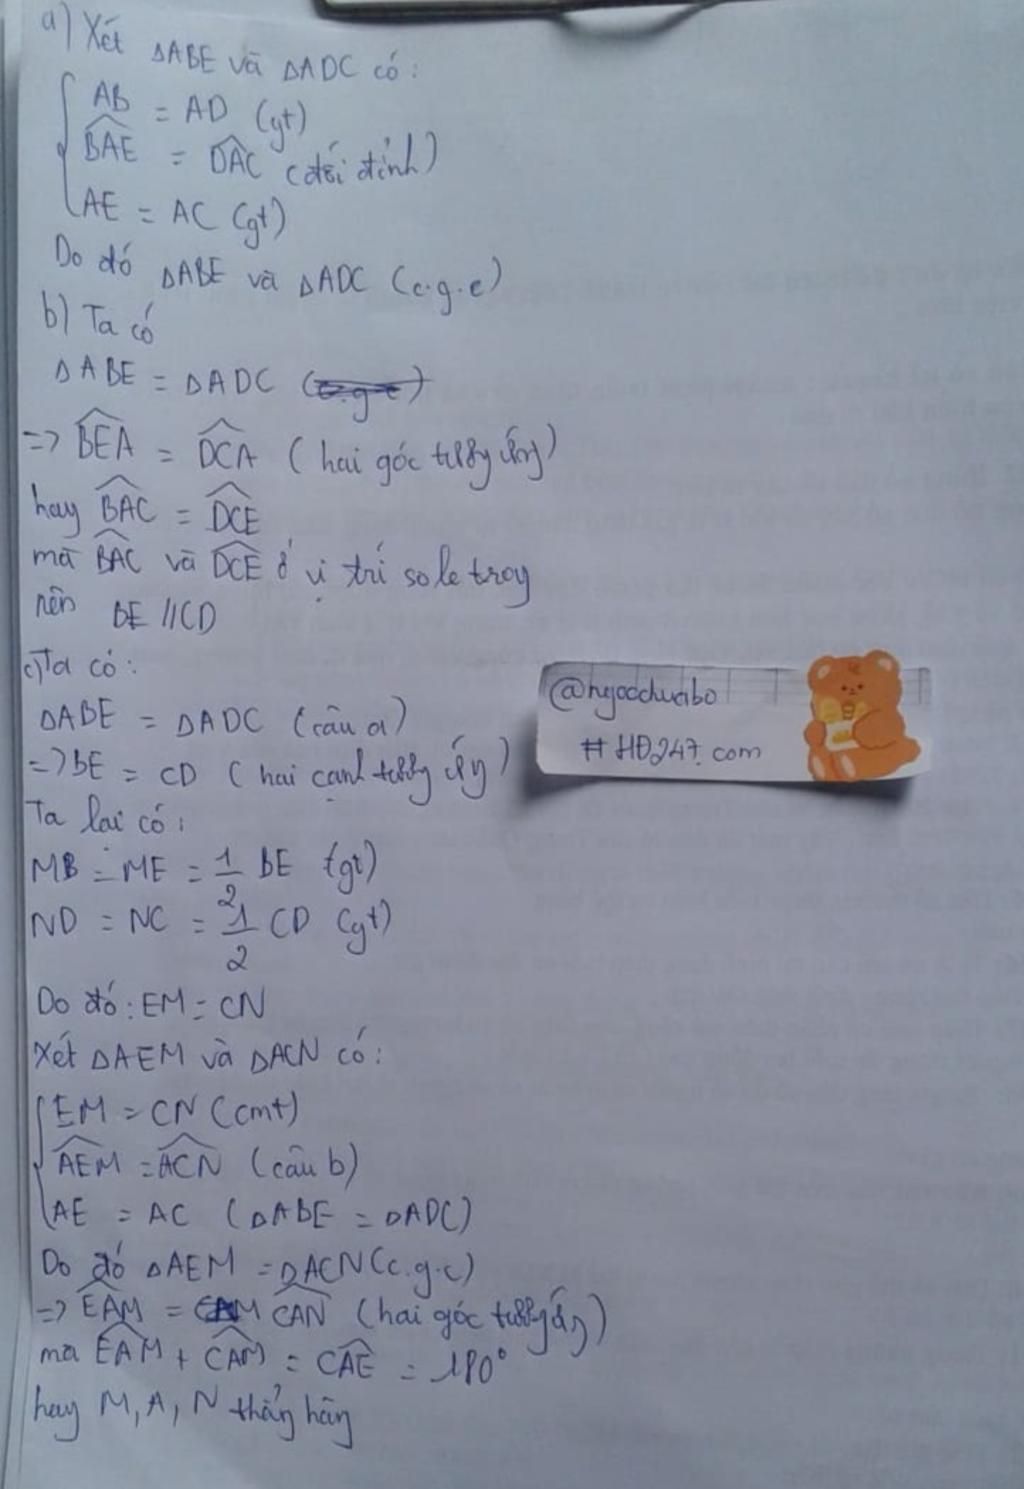 a) Xét ΔABE và ΔADC có:
AB = AD (gt)
BAE = DAC (đối đỉnh)
AE = AC (gt)
Do đó ΔABE và ΔADC (c.g.c)
b) Ta có
ΔABE = ΔADC
=> BEA = DCA (hai góc tương ứng)
hay BAC = DCE
mà BAC và DCE ở vị trí so le trong
nên BE // CD
c) Ta có:
ΔABE = ΔADC (câu a)
=> BE = CD (hai cạnh tương ứng)
@ngocduabo
#HĐ247.com
Ta lại có:
MB = ME = 1/2 BE (gt)
ND = NC = 1/2 CD (gt)
Do đó: EM = CN
Xét ΔAEM và ΔACN có:
EM = CN (cmt)
AEM = ACN (câu b)
AE = AC (ΔABE = ΔADC)
Do đó ΔAEM = ΔACN (c.g.c)
=> EAM = CAN (hai góc tương ứng)
mà EAM + CAM = CAE = 180°
hay M, A, N thẳng hàng